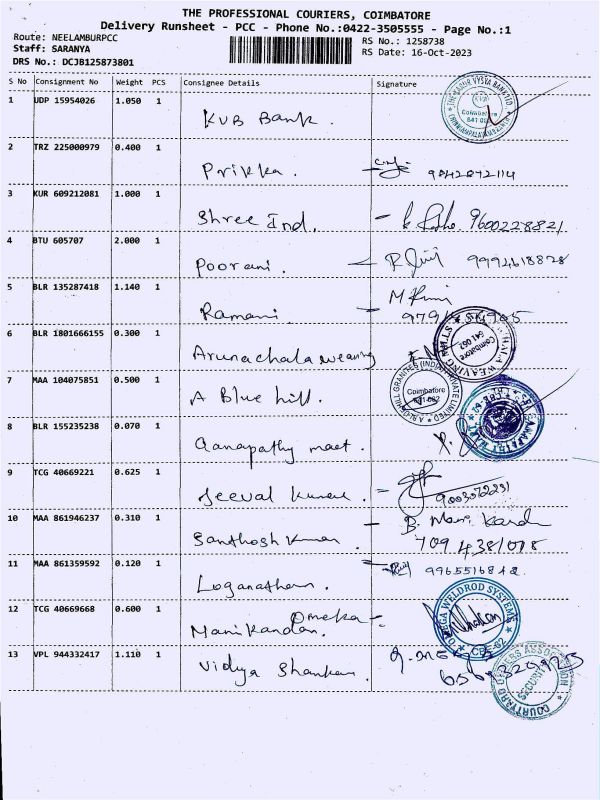 THE PROFESSIONAL COURIERS, COIMBATORE
Delivery Runsheet - PCC - Phone No.:0422-3505555 - Page No.:1
Route: NEELAMBURPCC RS No.: 1258738
Staff: SARANYA RS Date: 16-Oct-2023
DRS No.: DCJB125873801
S No Consignment No Weight PCS Consignee Details Signature
1 UDP 15954026 1.050 1 KVB Bank.
2 TRZ 225000979 0.400 1 Prikka. 9842872114
3 KUR 609212081 1.000 1 Shree Ind. 9600228821
4 BTU 605707 2.000 1 Poorani.
5 BLR 135287418 1.140 1 Ramani.
6 BLR 1801666155 0.300 1 Arunachala weaving
Coimbatore
641 062
7 MAA 104075851 0.500 1 A Blue hill.
Coimbatore
641 062
8 BLR 155235238 0.070 1 Ganapathy maet.
9 TCG 40669221 0.625 1 Jeeval Kumar.
10 MAA 861946237 0.310 1 Santhosh Kumar B. Mani
7094381078
11 MAA 861359592 0.120 1 Loganathan. 9965516842
12 TCG 40669668 0.600 1 Omega
Manikandan.
OMEGA WELDROD SYSTEMS
CBE-62
13 VPL 944332417 1.110 1 Vidya Shankar
SECURITY